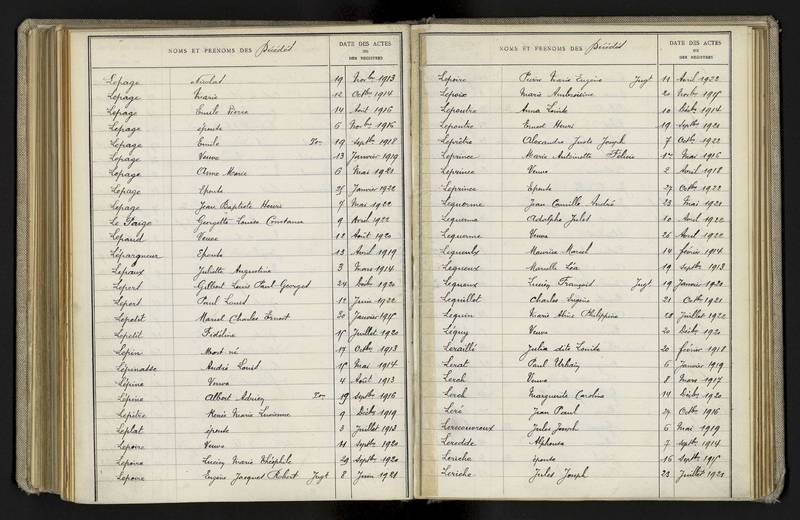 NOMS ET PRENOMS DES Décédés
DATE DES ACTES
OU
DES REGISTRES
Lepage Nicolas 19 Novbre 1913
Lepage Marie 12 Octbre 1914
Lepage Emile Pierre 14 Août 1916
Lepage épouse 6 Novbre 1916
Lepage Emile 19 Septbre 1918
Lepage Veuve 13 Janvier 1919
Lepage Anne Marie 6 Mai 1921
Lepage Epouse 25 Janvier 1922
Lepage Jean Baptiste Henri 7 Mai 1922
Le Paige Georgette Louise Constance 9 Avril 1922
Lepand Veuve 12 Août 1920
Lépargneur Epouse 13 Avril 1919
Lepaux Juliette Augustine 3 Mars 1914
Lepert Gilbert Louis Paul Georges 24 1920
Lepert Paul Louis 12 Juin 1922
Lepetit Marcel Charles Ernest 20 Janvier 1915
Lepetit Fidéline 15 Juillet 1920
Lepin Mort né 17 Octbre 1913
Lépinasse André Louis 15 Mai 1914
Lépine Veuve 4 Août 1913
Lépine Albert Adrien 19 Septbre 1916
Lepitre Renée Marie Lucienne 9 Décbre 1919
Leplat épouse 3 Juillet 1913
Lepoire Veuve 11 Septbre 1920
Lepoire Lucien Marie Théophile 29 Septbre 1920
Lepoire Eugène Jacques Robert Jugt 8 Juin 1921
NOMS ET PRENOMS DES Décédés
DATE DES ACTES
OU
DES REGISTRES
Lepoire Pierre Marie Eugène Jugt 11 Avril 1922
Lepoix Marie Ambroisine 20 Novbre 1915
Lepoutre Anna Louise 10 Décbre 1914
Lepoutre Ernest Henri 19 Septbre 1920
Leprêtre Alexandre Juste Joseph 7 Octbre 1922
Leprince Marie Antoinette Félicie 1er Mai 1916
Leprince Veuve 2 Avril 1918
Leprince Epouse 27 Octbre 1922
Lequorme Jean Camille André 23 Mai 1920
Lequesme Adolphe Jules 10 Avril 1922
Lequorme Veuve 26 Avril 1922
Lequeulx Maurice Marcel 14 février 1914
Lequeux Marcelle Léa 19 Septbre 1913
Lequeux Lucien François Jugt 19 Janvier 1920
Lequillet Charles Eugène 21 Octbre 1921
Lequin Marie Alice Philippine 28 Juillet 1922
Léquy Veuve 20 Décbre 1920
Leraillé Julia dite Louise 20 février 1918
Lerat Paul Urbain 6 Janvier 1919
Lerch Veuve 8 Mars 1917
Lerch Marguerite Caroline 14 Décbre 1920
Leré Jean Paul 27 Octbre 1916
Lerecouvreux Jules Joseph 6 Mai 1919
Leredde Alphonse 7 Septbre 1914
Leriche épouse 16 Septbre 1915
Leriche Jules Joseph 23 Juillet 1921